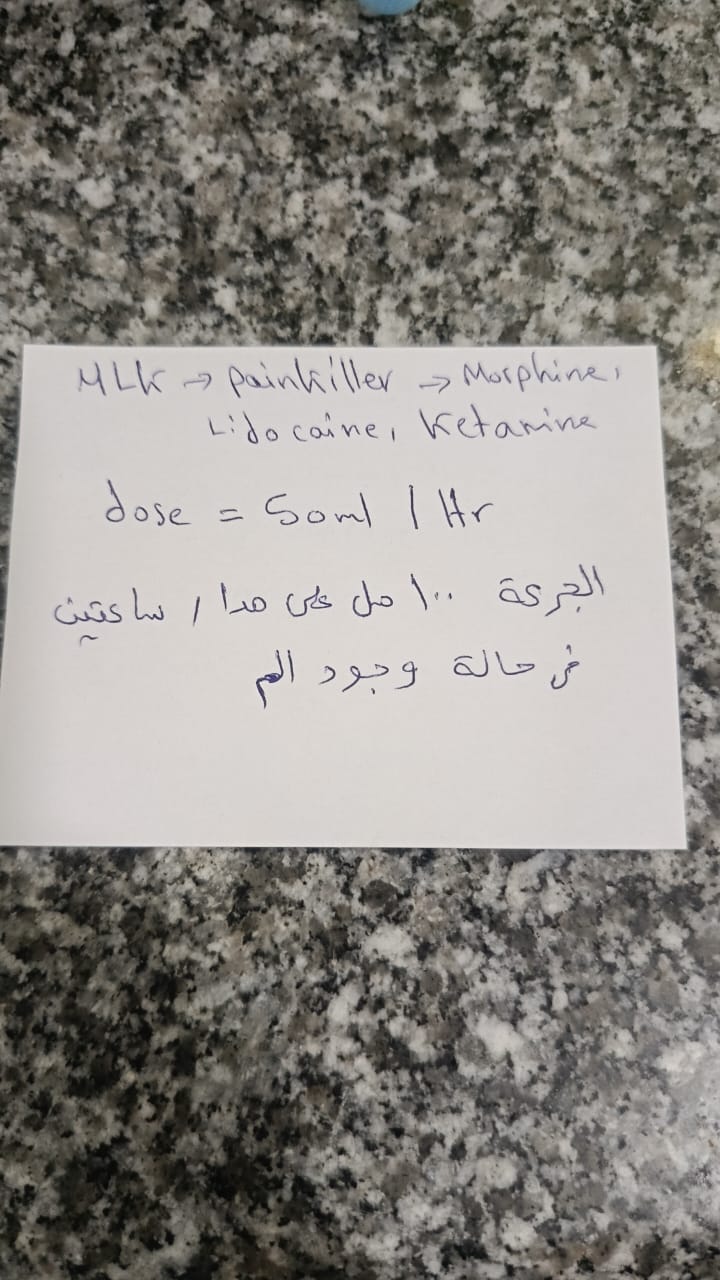 MLK → painkiller → Morphine,
Lidocaine, Ketamine
dose = 50ml / Hr
الجرعة ١٠٠ مل على مدا / ساعتين
في حالة وجود الم